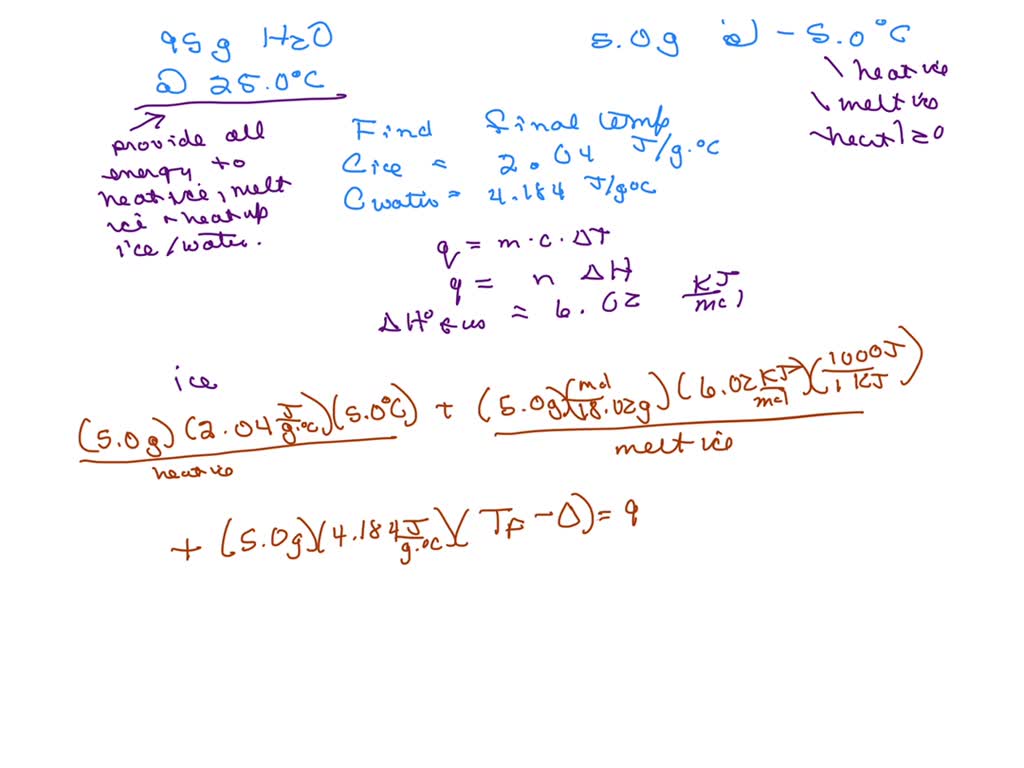 95g H2O
@ 25.0°C
5.0g @ -5.0°C
\ heat ice
\ melt ice
heat H2O
provide all
energy to
heat ice, melt
ice + heat up
ice/water.
Find final temp
Cice = 2.04 J/g.°C
Cwater = 4.184 J/g°C
q = m·c·ΔT
q = n ΔH
ΔH°fus = 6.02 KJ/mol
ice
(5.0g)(2.04 J/g.°C)(5.0°C) + (5.0g)(mol/18.02g)(6.02 KJ/mol)(1000J/1 KJ)
heat ice
melt ice
+ (5.0g)(4.184 J/g.°C)(Tf - 0) = q